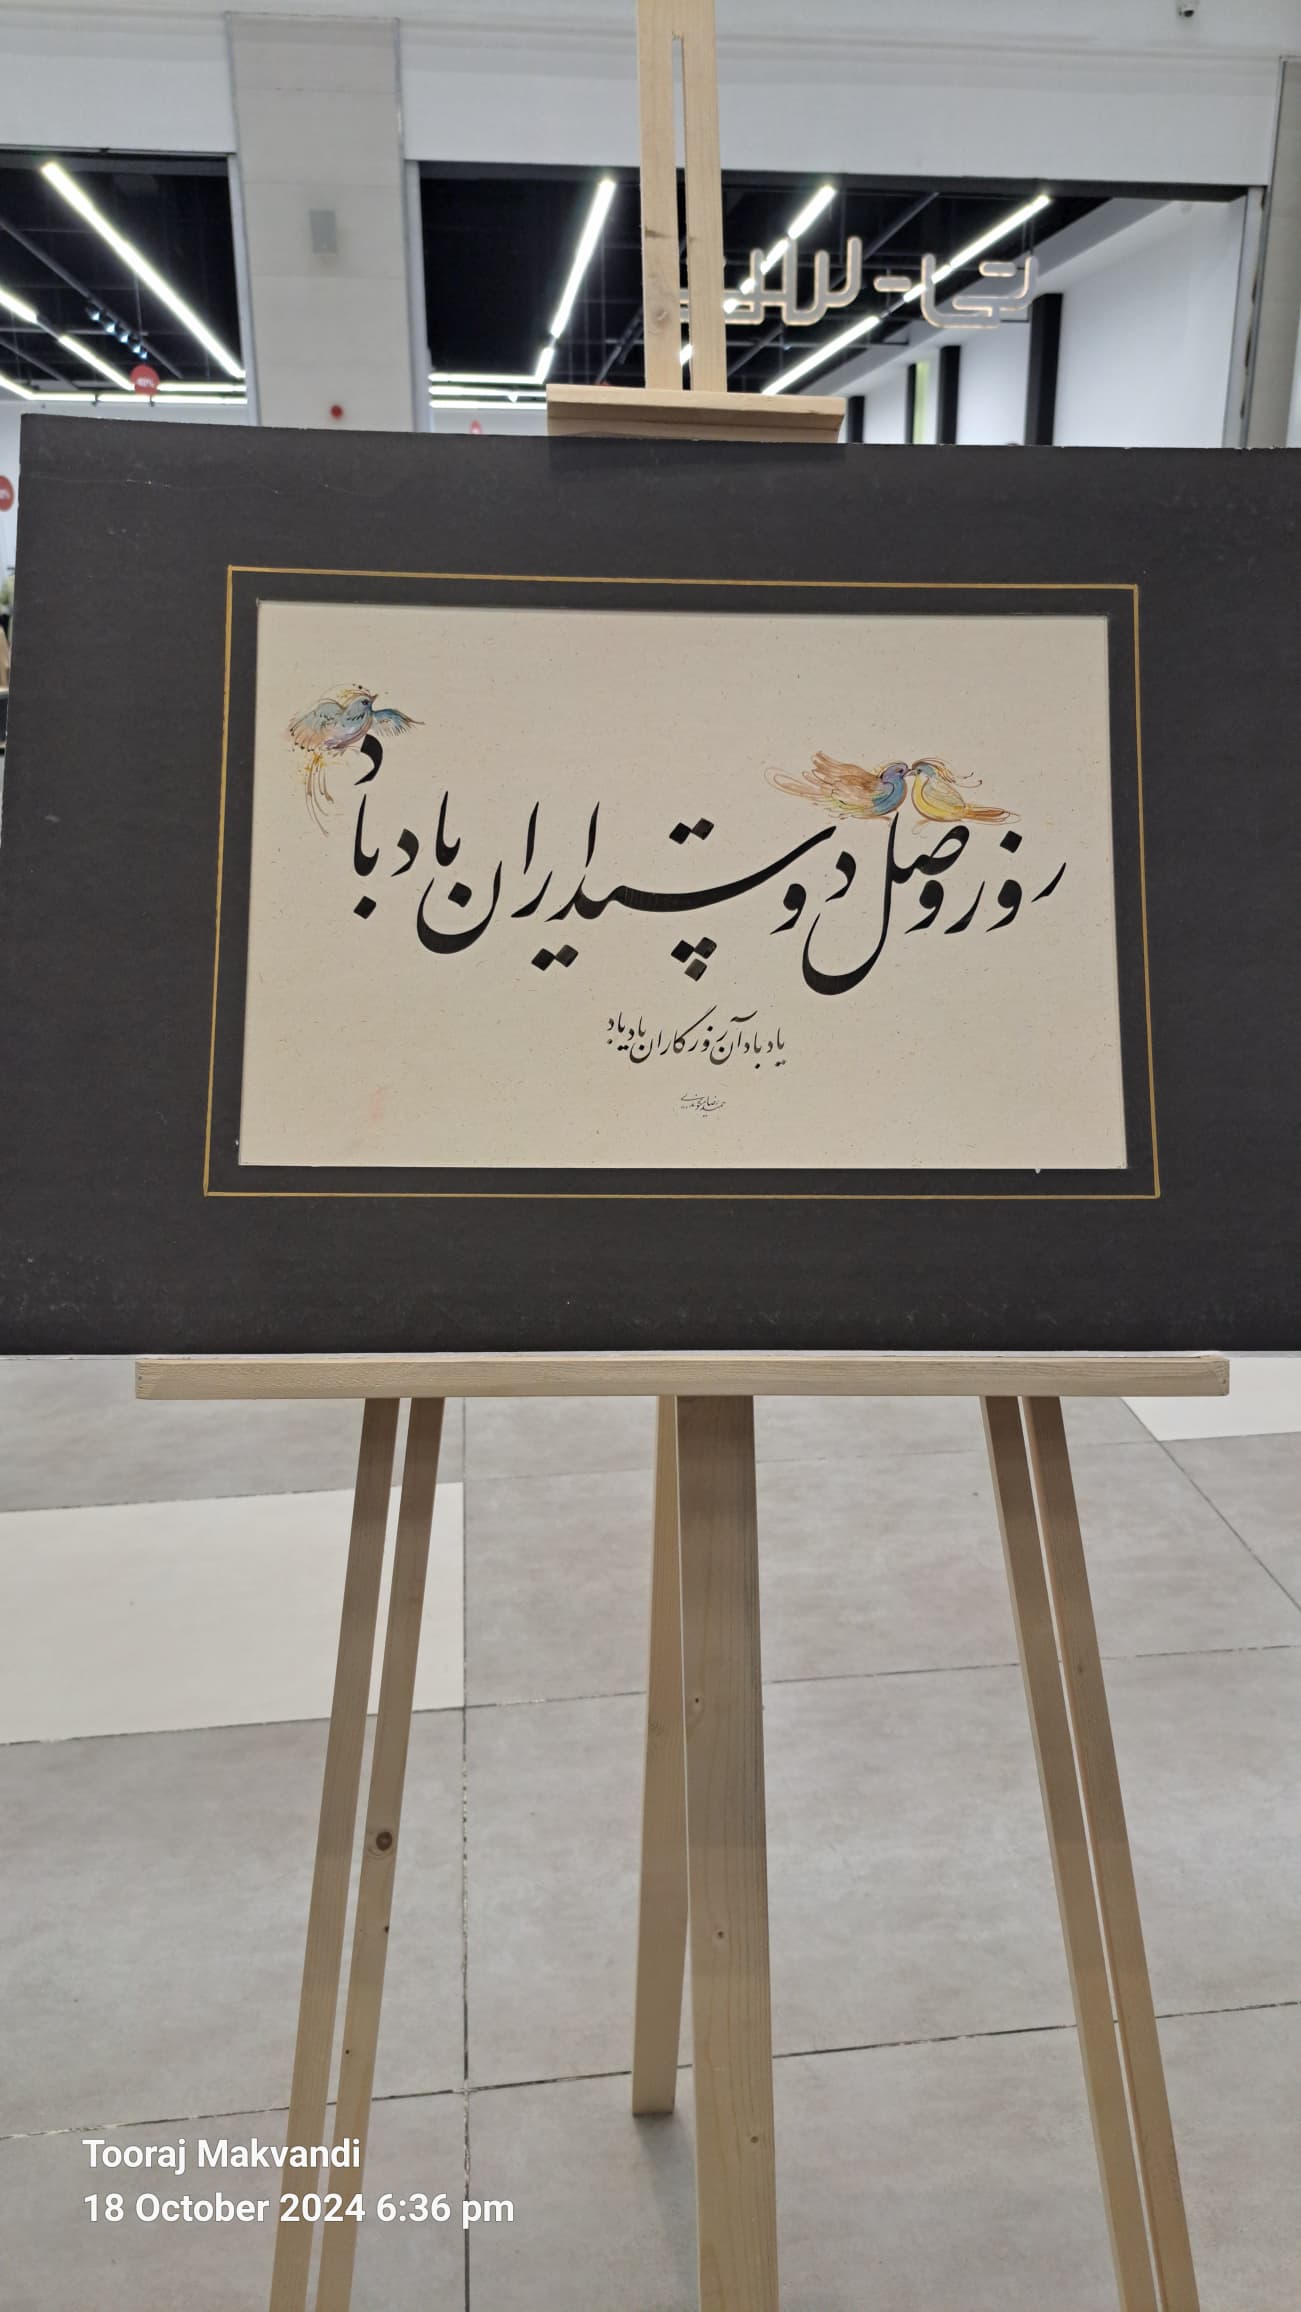 روز وصل دوستداران یاد باد
یاد باد آن روزگاران یاد باد
Tooraj Makvandi
18 October 2024 6:36 pm